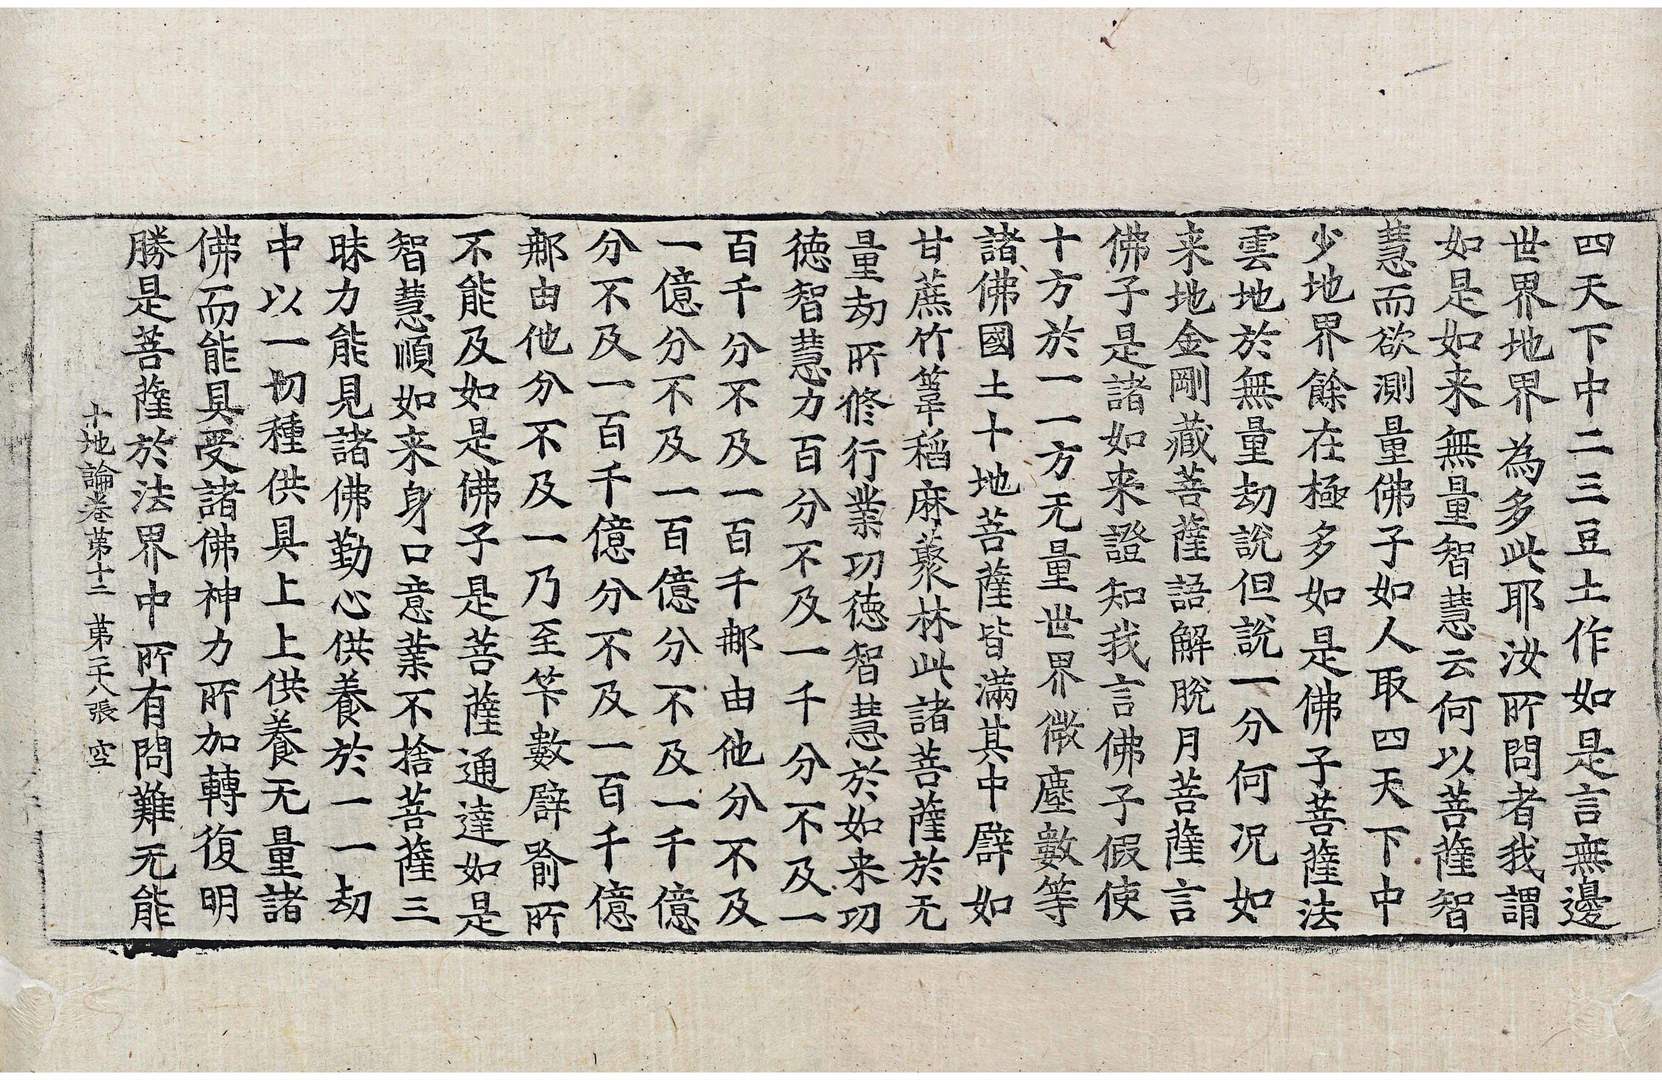 四天下中二三豆土作如是言無邊
世界地界為多此耶汝所問者我謂
如是如来無量智慧云何以菩薩智
慧而欲測量佛子如人取四天下中
少地界餘在極多如是佛子菩薩法
雲地於無量劫說但說一分何况如
来地金剛藏菩薩語解脫月菩薩言
佛子是諸如来證知我言佛子假使
十方於一一方无量世界微塵數等
諸佛國土十地菩薩皆滿其中譬如
甘蔗竹葦稻麻藂林此諸菩薩於无
量劫所修行業功徳智慧於如来功
徳智慧力百分不及一千分不及一
百千分不及一百千那由他分不及
一億分不及一百億分不及一千億
分不及一百千億分不及一百千億
那由他分不及一乃至筭數譬喻所
不能及如是佛子是菩薩通達如是
智慧順如来身口意業不捨菩薩三
昧力能見諸佛勤心供養於一一劫
中以一切種供具上上供養无量諸
佛而能具受諸佛神力所加轉復明
勝是菩薩於法界中所有問難无能
十地論卷第十二 第二十八張 空